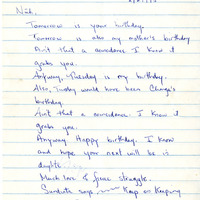 Nik.
Tomorrow is your birthday.
Tomorrow is also my mother's birthday
Ain't that a coincidence I know it
grabs you.
Anyway, Tuesday is my birthday.
Also, Tuesday would have been Chang's
birthday.
Ain't that a coincidence. I know it
grabs you.
Anyway Happy birthday. I know
and hope your next will be in
daylite
Much love & fierce struggle.
says Keep on Keeping